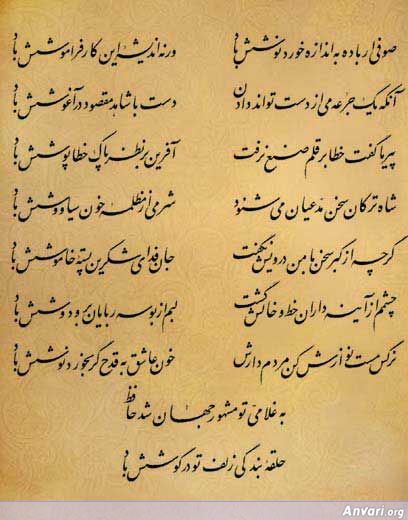 صوفی ار باده به اندازه خورد نوشش باد ورنه اندیشهٔ این کار فراموشش باد
آنکه یک جرعه می از دست تواند دادن دست با شاهد مقصود در آغوشش باد
پیر ما گفت خطا بر قلم صنع نرفت آفرین بر نظر پاک خطاپوشش باد
شاه ترکان سخن مدعیان می‌شنود شرمی از مظلمهٔ خون سیاووشش باد
گرچه از کبر سخن با من درویش نگفت جان فدای شکرین پستهٔ خاموشش باد
چشمم از آینه داران خط و خالش گشت لبم از بوسه ربایان بر و دوشش باد
نرگس مست نوازش کن مردم دارش خون عاشق به قدح گر بخورد نوشش باد
به غلامی تو مشهور جهان شد حافظ
حلقهٔ بندگی زلف تو در گوشش باد
Anvari.org